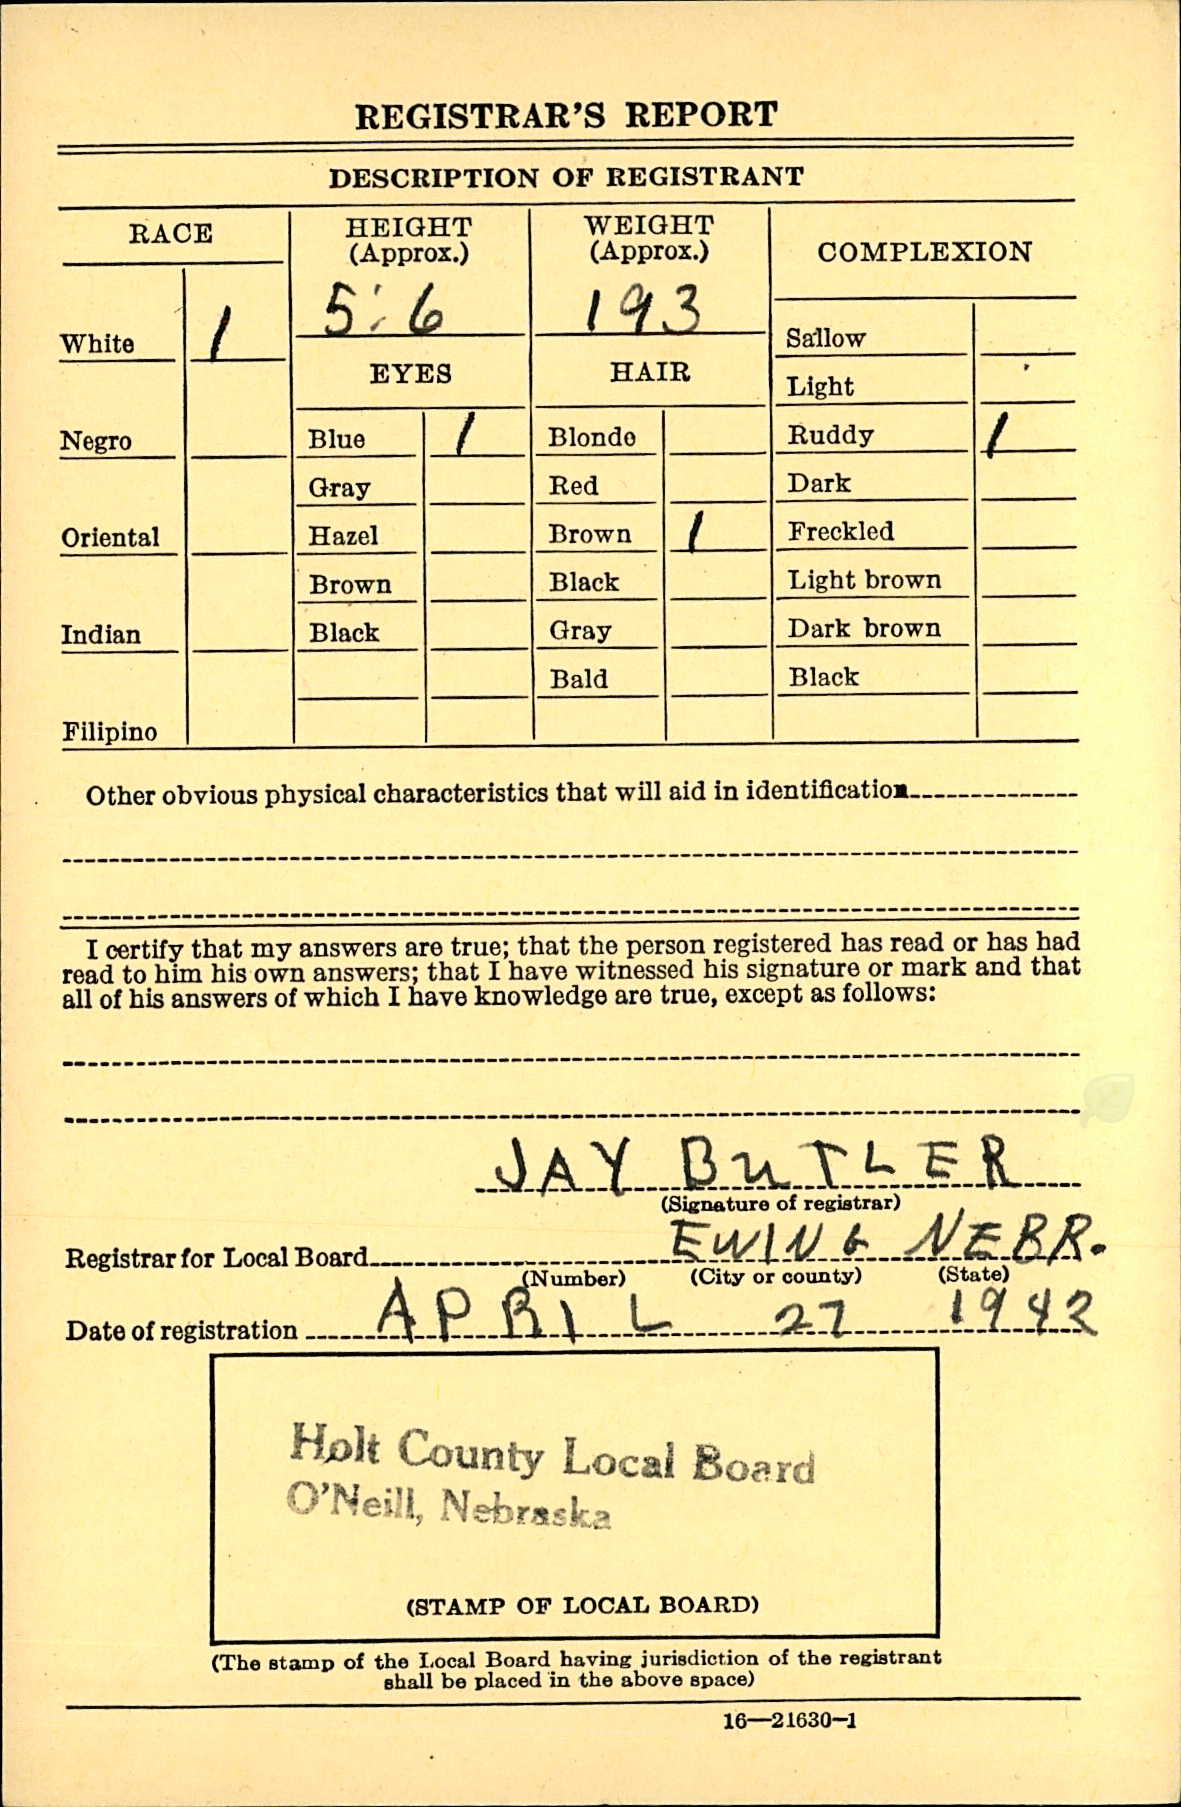 REGISTRAR'S REPORT
DESCRIPTION OF REGISTRANT
RACE
HEIGHT
(Approx.)
WEIGHT
(Approx.)
COMPLEXION
5' 6
193
White 1
EYES
HAIR
Sallow
Light
Negro
Blue 1
Blonde
Ruddy 1
Gray
Red
Dark
Oriental
Hazel
Brown 1
Freckled
Brown
Black
Light brown
Indian
Black
Gray
Dark brown
Bald
Black
Filipino
Other obvious physical characteristics that will aid in identification
I certify that my answers are true; that the person registered has read or has had
read to him his own answers; that I have witnessed his signature or mark and that
all of his answers of which I have knowledge are true, except as follows:
JAY BUTLER
(Signature of registrar)
Registrar for Local Board EWING NEBR.
(Number) (City or county) (State)
Date of registration APRIL 27 1942
Holt County Local Board
O'Neill, Nebraska
(STAMP OF LOCAL BOARD)
(The stamp of the Local Board having jurisdiction of the registrant
shall be placed in the above space)
16—21630-1